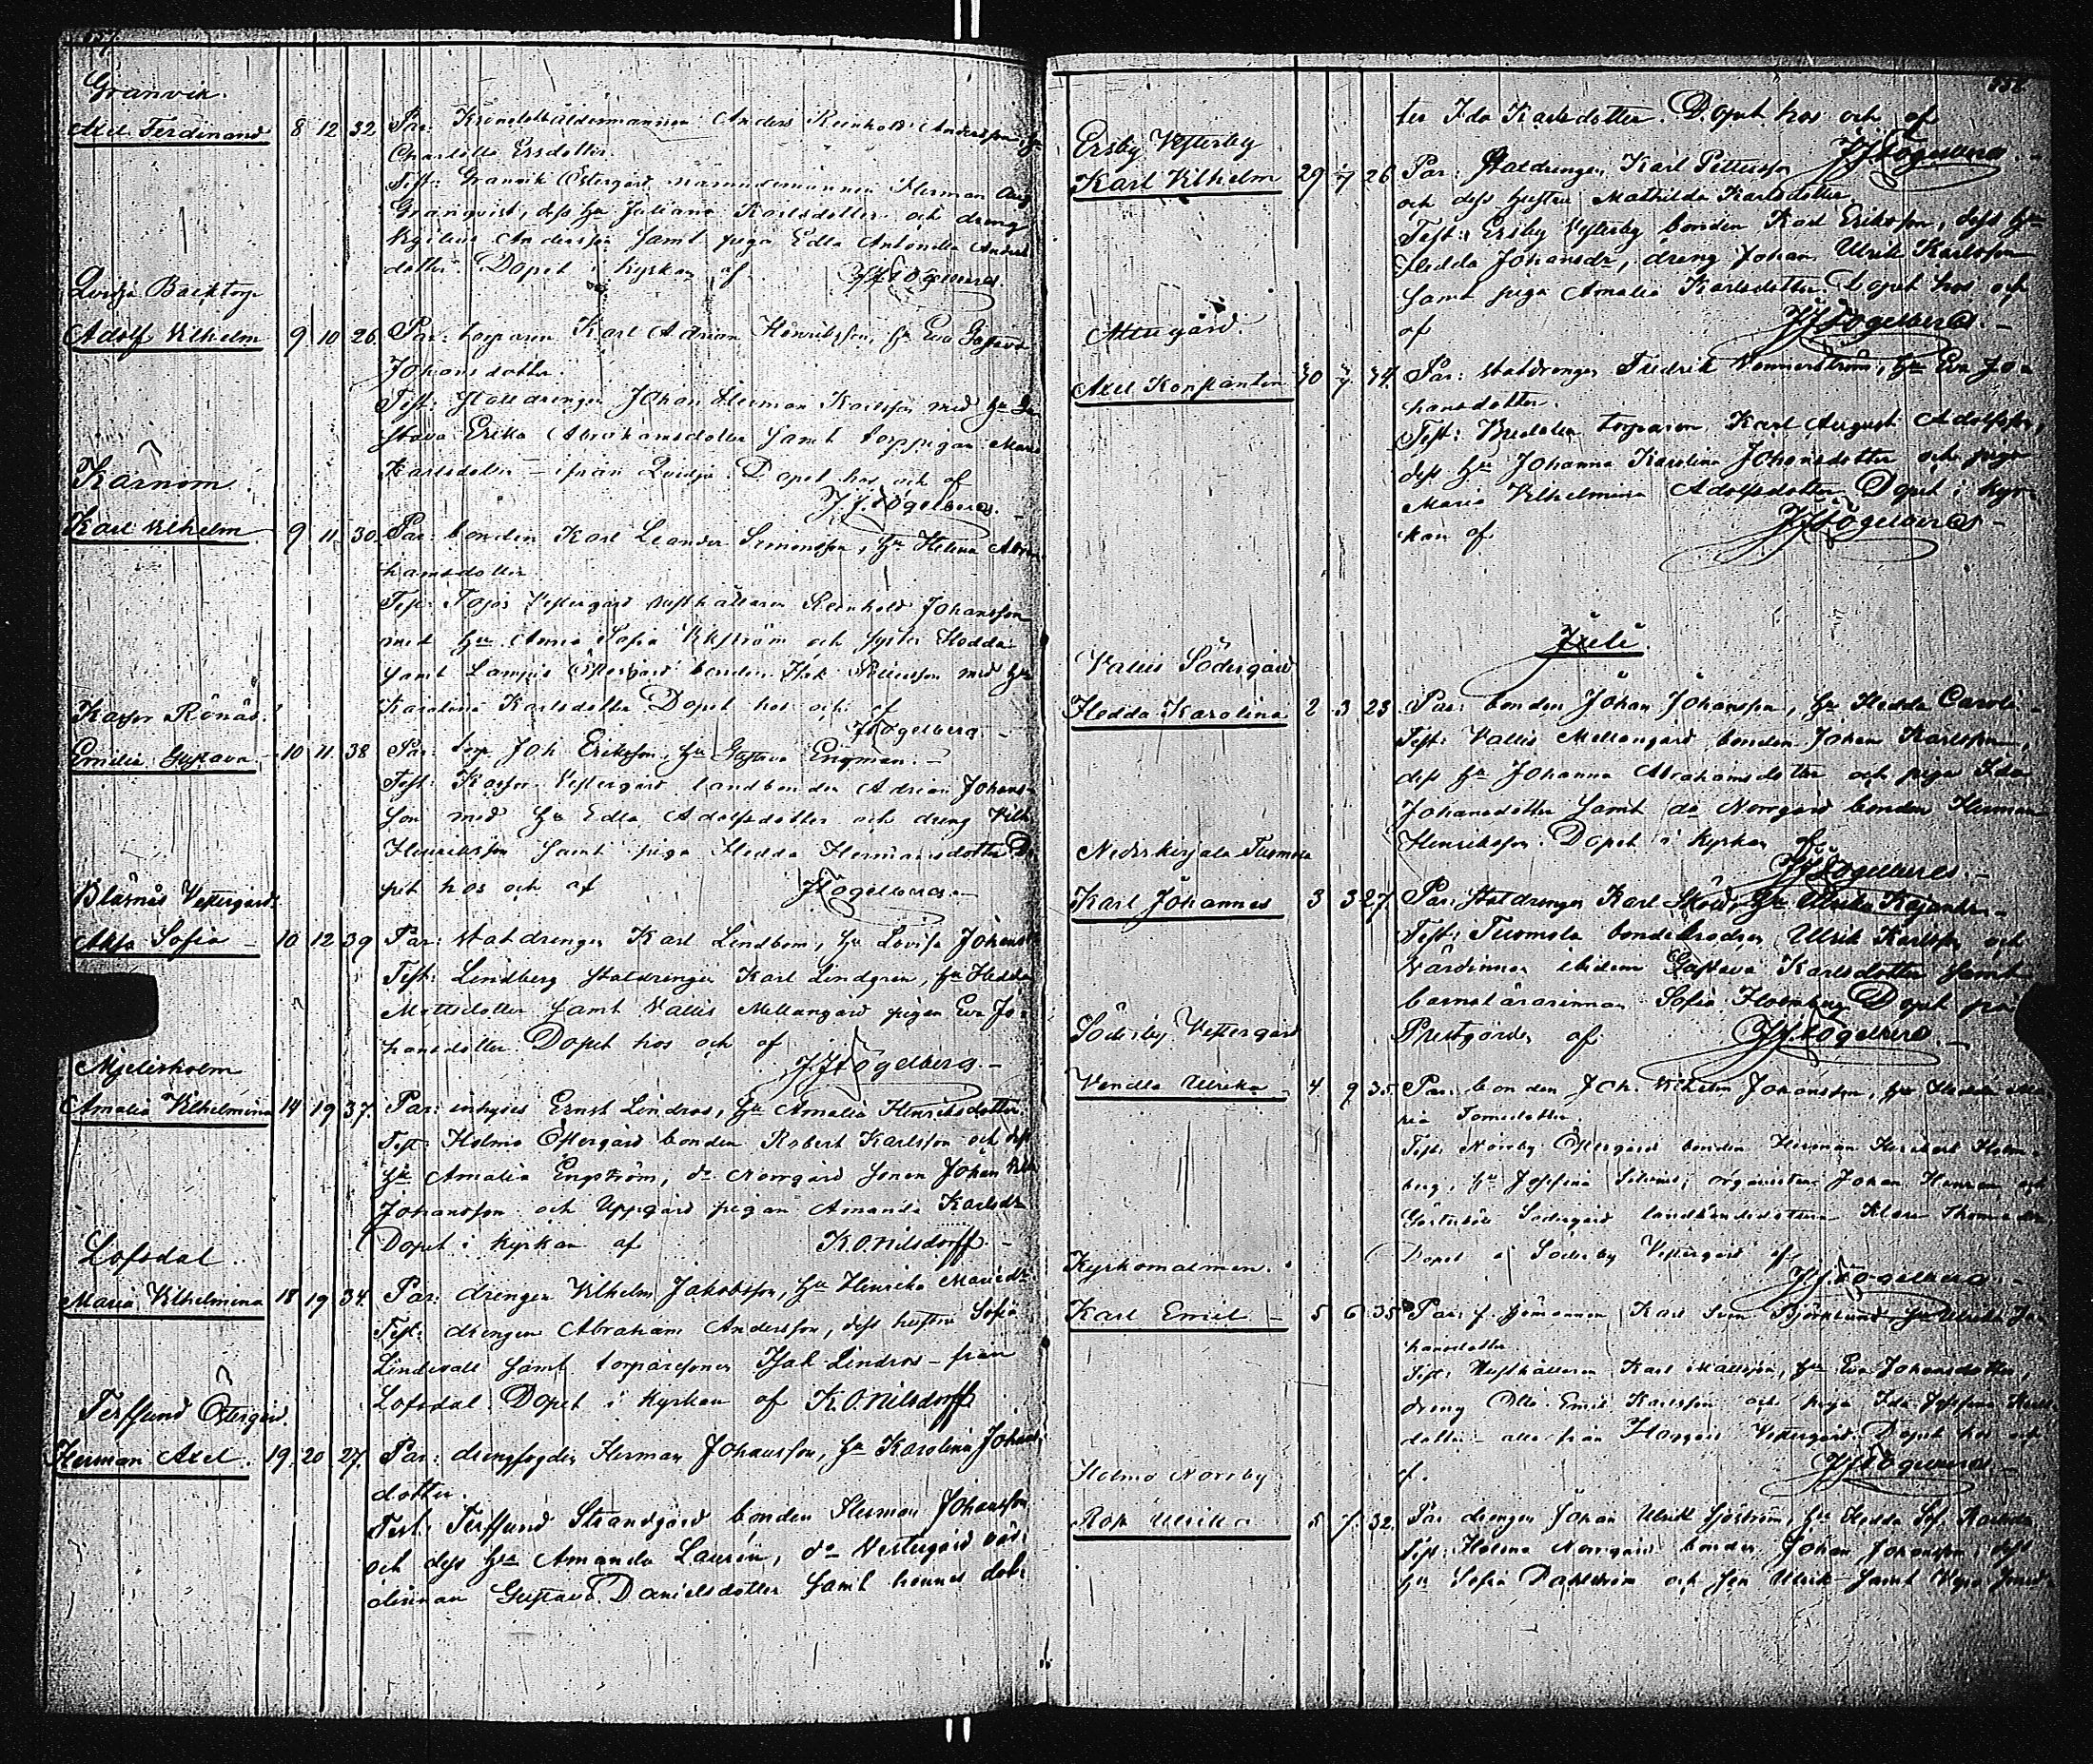 Granvik.
Axel Ferdinand 8 12 32 Par: Kronolänsmannen Anders Reinhold Andersson, hu
Charlotta Ersdotter.
Test: Granvik Östergård nämndemannen Herman Aug
Granqvist, dess hu Juliana Karlsdotter och dreng
Andersson samt piga Edla Antonia Anders
dotter. Döpet i kyrkan af JJFogelberg
Qvidja Backtorp
Adolf Vilhelm 9 10 26. Par: torparen Karl Adrian Henriksson, hu Eva Gustava
Johansdotter.
Test: Statdrengen Johan Herman Karlsson med hu Gu
stava Erika Abrahamsdotter samt torppigan Maria
Karlsdotter – ifrån Qvidja. Döpet hos och af
JJFogelberg. –
Kärnom.
Karl Vilhelm 9 11 30. Par: bonden Karl Leander Simonsson, hu Helena Abra
hamsdotter
Test: Tojos Vestergård rusthållaren Reinhold Johansson
med hu Anna Sofia Vikström och syster Hedda
samt Lampis Östergård bonden Isak med hu
Karolina Karlsdotter Döpet hos och af
JFogelberg. –
Kasfor Rönäs.
Emilia Gustava. 10 11 38 Par: torp Joh Eriksson, hu Gustava Engman. –
Test: Kasfor Vestergård landbonden Adrian Johans-
son med hu Edla Adolfsdotter och dreng Vilh
Henriksson samt piga Hedda Hermansdotter Dö
pet hos och af JFogelberg. –
Bläsnäs Vestergård.
Sofia – 10 12 39 Par: statdrengen Karl Lindbom, hu Lovisa Johansd
Test: Lindberg statdrengen Karl Lindgren, hu Hedda
Mattsdotter samt Vallis Mellangård pigan Eva Jo-
hansdotter. Döpet hos och af
JJFogelberg. –
Mjelisholm
Amalia Vilhelmina 14 19 37. Par: inhyses Ernst Lindros, hu Amalia Henriksdotter
Test: Holmo Östergård bonden Robert Karlsson och dess
hu Amalia Engström, do Norrgård sonen Johan Vilh
Johansson och Uppgård pigan Amanda Karlsdr
Döpet i kyrkan af K.O.Nilsdorff –
Lofsdal.
Maria Vilhelmina 18 19 34. Par: drengen Vilhelm Jakobsson, hu Henrika Mariedr
Test: drengen Abraham Andersson, dess hustru Sofia
Lindevall samt torparesonen Isak Lindros – från
Lofsdal. Döpet i kyrkan af K.O.Nilsdorff
Terfsund Östergård.
Herman Axel. 19. 20 27. Par: drengfogden Herman Johansson, hu Karolina Johans
dotter.
Test: Terfsund Strandgård bonden Herman Johansson
och dess hu Amanda Laurén, do Vestergård värd
dinnan Gustava Danielsdotter samt hennes dot-
ter Ida Karlsdotter. Döpet hos och af
JJFogelberg. –
Ersby Vesterby
Karl Vilhelm 29 7 26 Par: Statdrengen Karl Pettersson
och dess hustru Mathilda Karlsdotter
Test: Ersby Vesterby bonden Karl Eriksson, dess hu
Hedda Johansdr, dreng Johan Ulrik Karlsson
samt piga Amalia Karlsdotter. Döpet hos och
af JJFogelberg. –
Attugård.
Axel Konstantin 30 7. 34. Par: statdrengen Fredrik Vennerström, hu Eva Jo-
hansdotter.
Test: torparen Karl August Adolfsson,
dess hu Johanna Karolina Johansdotter och piga
Maria Vilhelmina Adolfsdotter. Döpet i kyr-
kan af JJFogelberg –
Juli
Vallis Södergård
Hedda Karolina 2 3 23 Par: bonden Johan Johansson, hu Hedda Caroli –
Test: Vallis Mellangård bonden Johan Karlsson,
dess hu Johanna Abrahamsdotter och piga Ida
Johansdotter samt do Norrgård bonden Herman
Henriksson. Döpet i kyrkan af
JJFogelberg. –
Nederkirjala Tuomola
Karl Johannes 3 3 27 Par: Statdrengen Karl Sköld, hu Ulrika Kajander –
Test: Tuomola bondebrodren Ulrik Karlsson och
värdinnan ibidem Gustava Karlsdotter samt
barnalärarinnan Sofia Holmberg Döpet på
Prestgården af JJFogelberg. –
Söderby Vestergård
Vendla Ulrika – 4 9 35. Par. bonden Joh. Vilhelm Johansson, hu Hedda Ma
ria Tomsdotter
Test: Norrby Östergård bonden Herman Holm-
berg, hu Josefina organisten Johan och
Södergård Klara Thomasdr
Döpet å Söderby Vestergård af
JJFogelberg. –
Kyrkomalmen.
Karl Emil – 5 6 35 Par: f. sjömannen Karl Björklund hu Ulrika Jo
hansdotter
Test: Rusthållaren Karl Mattsson, hu Eva Johansdotter,
dreng Otto Emil Karlsson och piga Ida Josefina Karls
dotter – alla från Vestergård. Döpet hos och
af. JJFogelberg. –
Holmo Norrby
Rosa Ulrika 5 7 32. Par drengen Johan Ulrik Sjöström, hu Hedda Sof.
Test: Holmo Norrgård bonden Johan Johansson, dess
hu Sofia Dahlström och son Ulrik samt